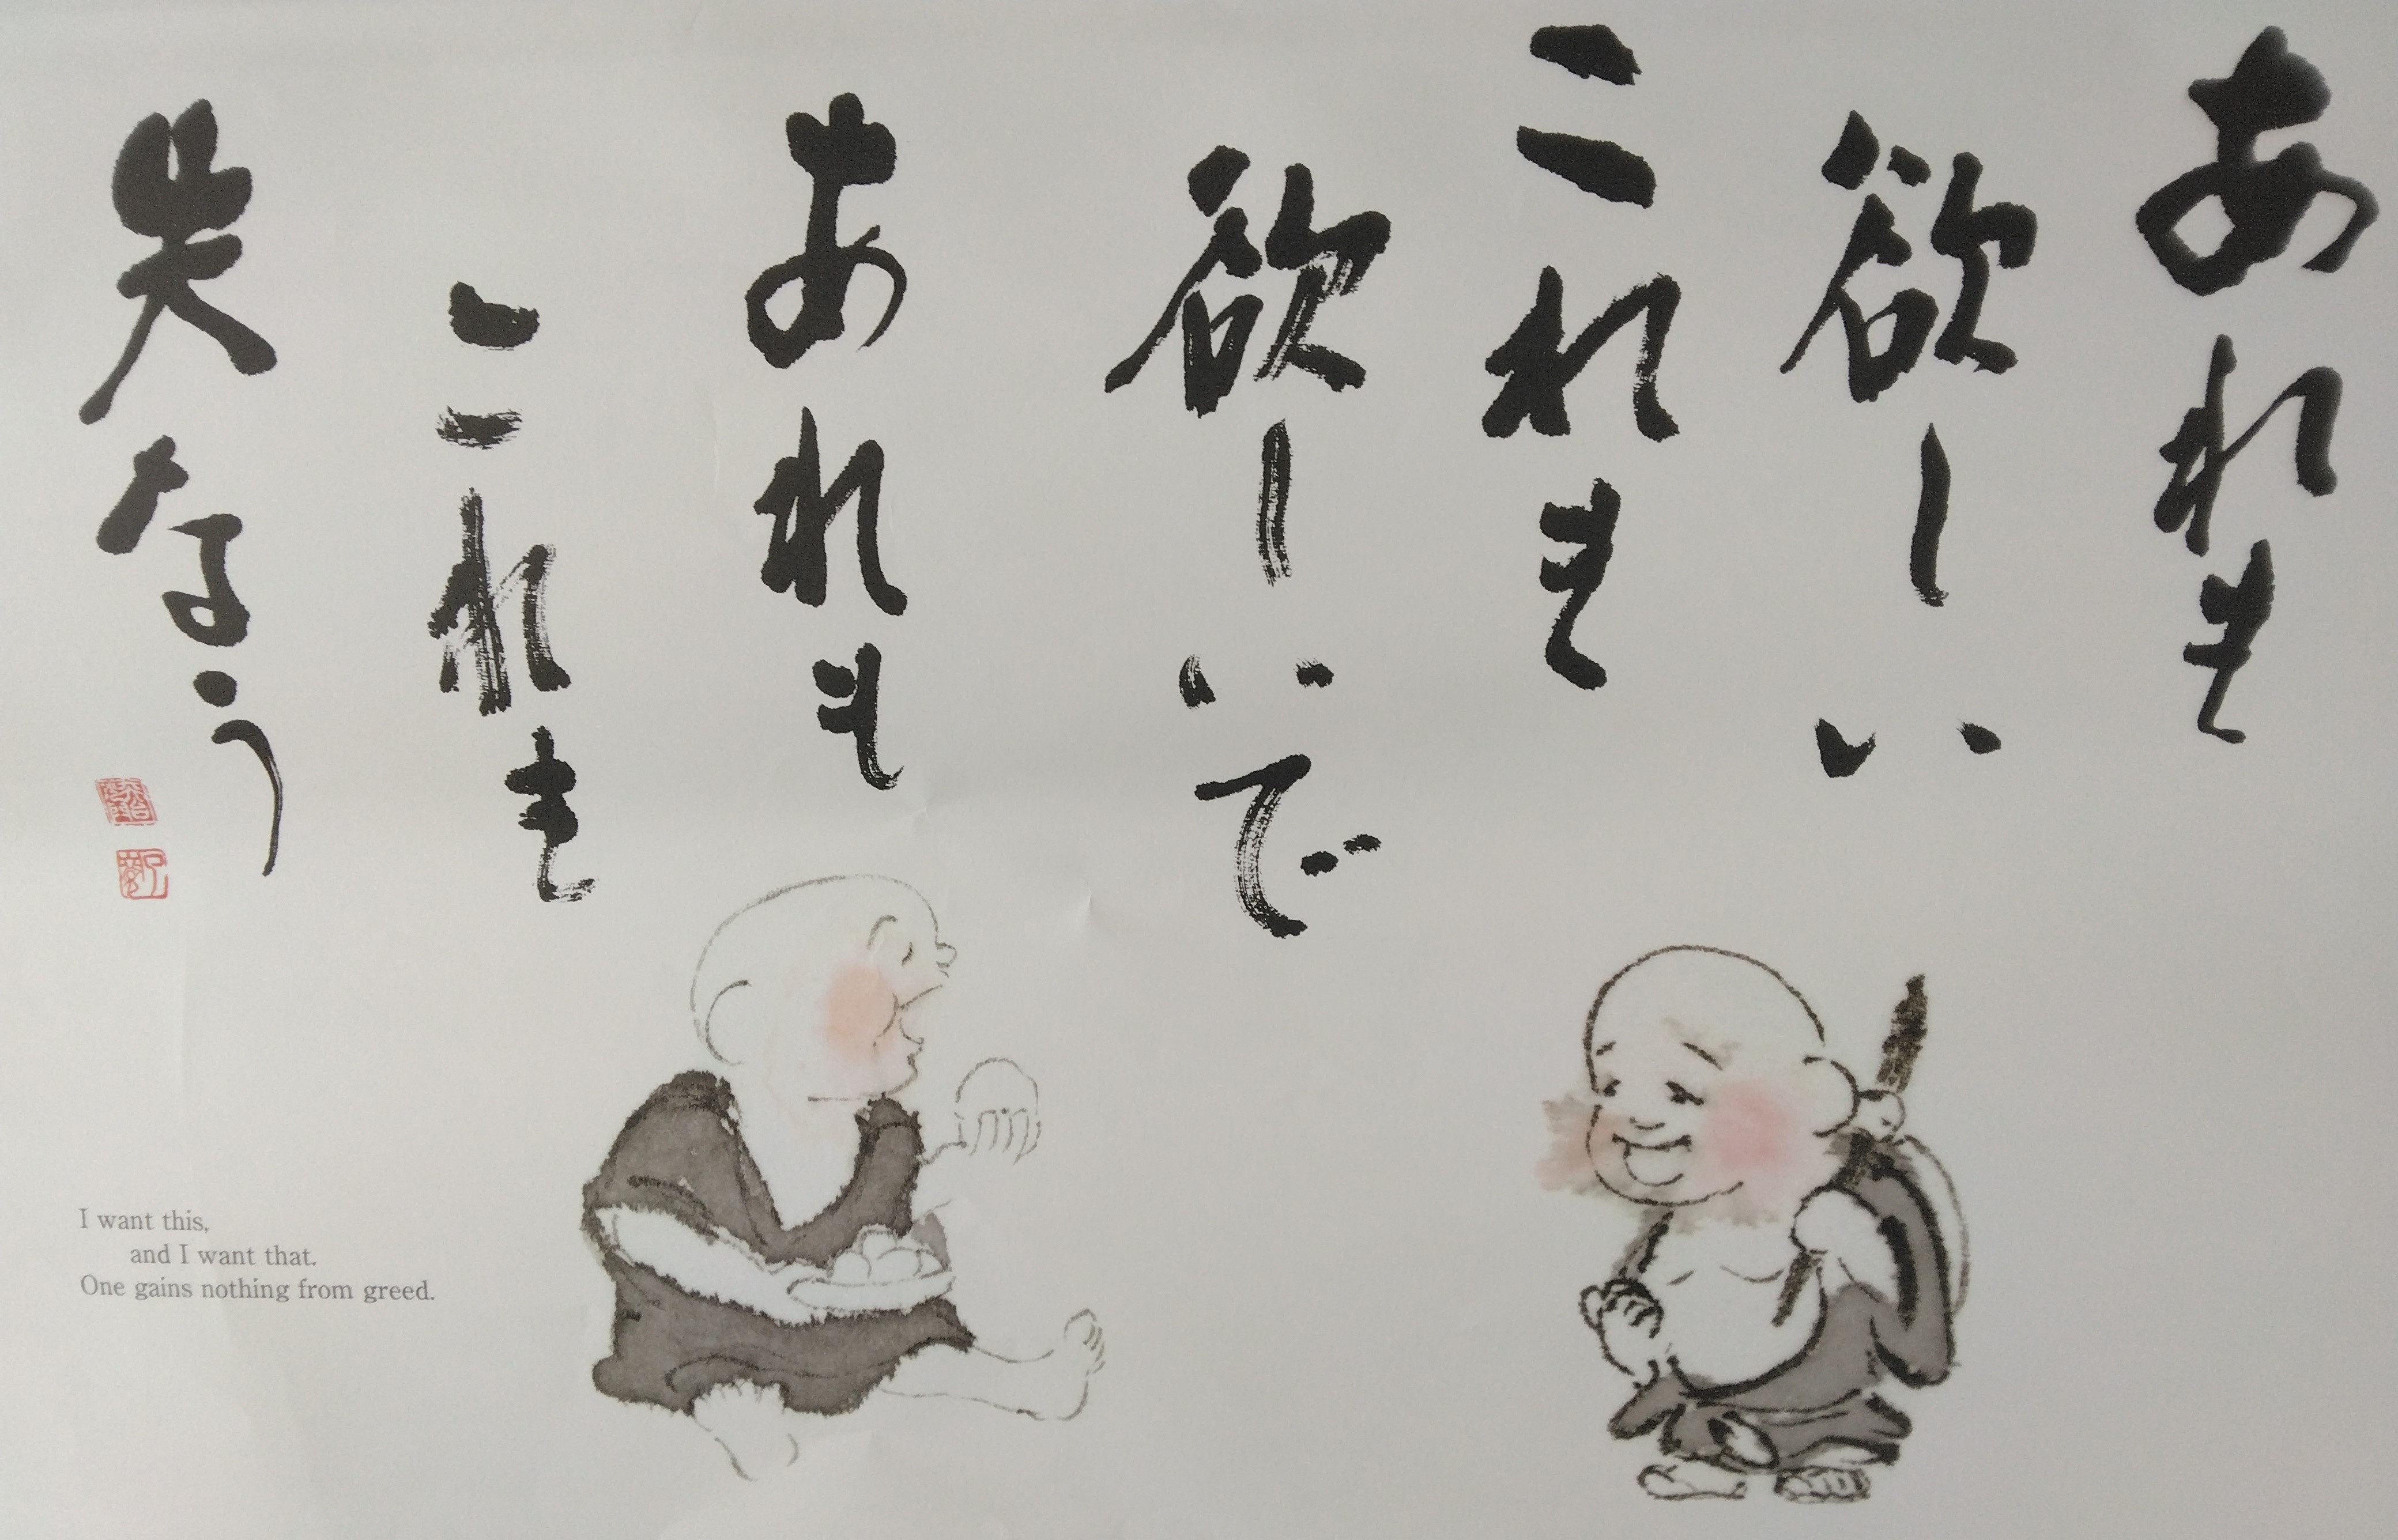 あれも
欲しい
これも
欲しいで
あれも
これも
失なう
I want this,
and I want that.
One gains nothing from greed.